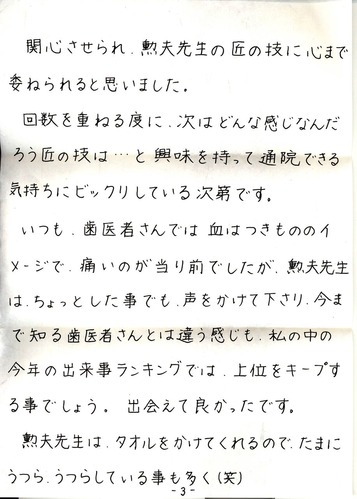 関心させられ、勲夫先生の匠の技に心まで
委ねられると思いました。
回数を重ねる度に、次はどんな感じなんだ
ろう匠の技は…と興味を持って通院できる
気持ちにビックリしている次第です。
いつも、歯医者さんでは血はつきもののイ
メージで、痛いのが当り前でしたが、勲夫先生
は、ちょっとした事でも、声をかけて下さり、今ま
で知る歯医者さんとは違う感じも、私の中の
今年の出来事ランキングでは、上位をキープす
る事でしょう。出会えて良かったです。
勲夫先生は、タオルをかけてくれるので、たまに
うつら、うつらしている事も多く(笑)
-3-